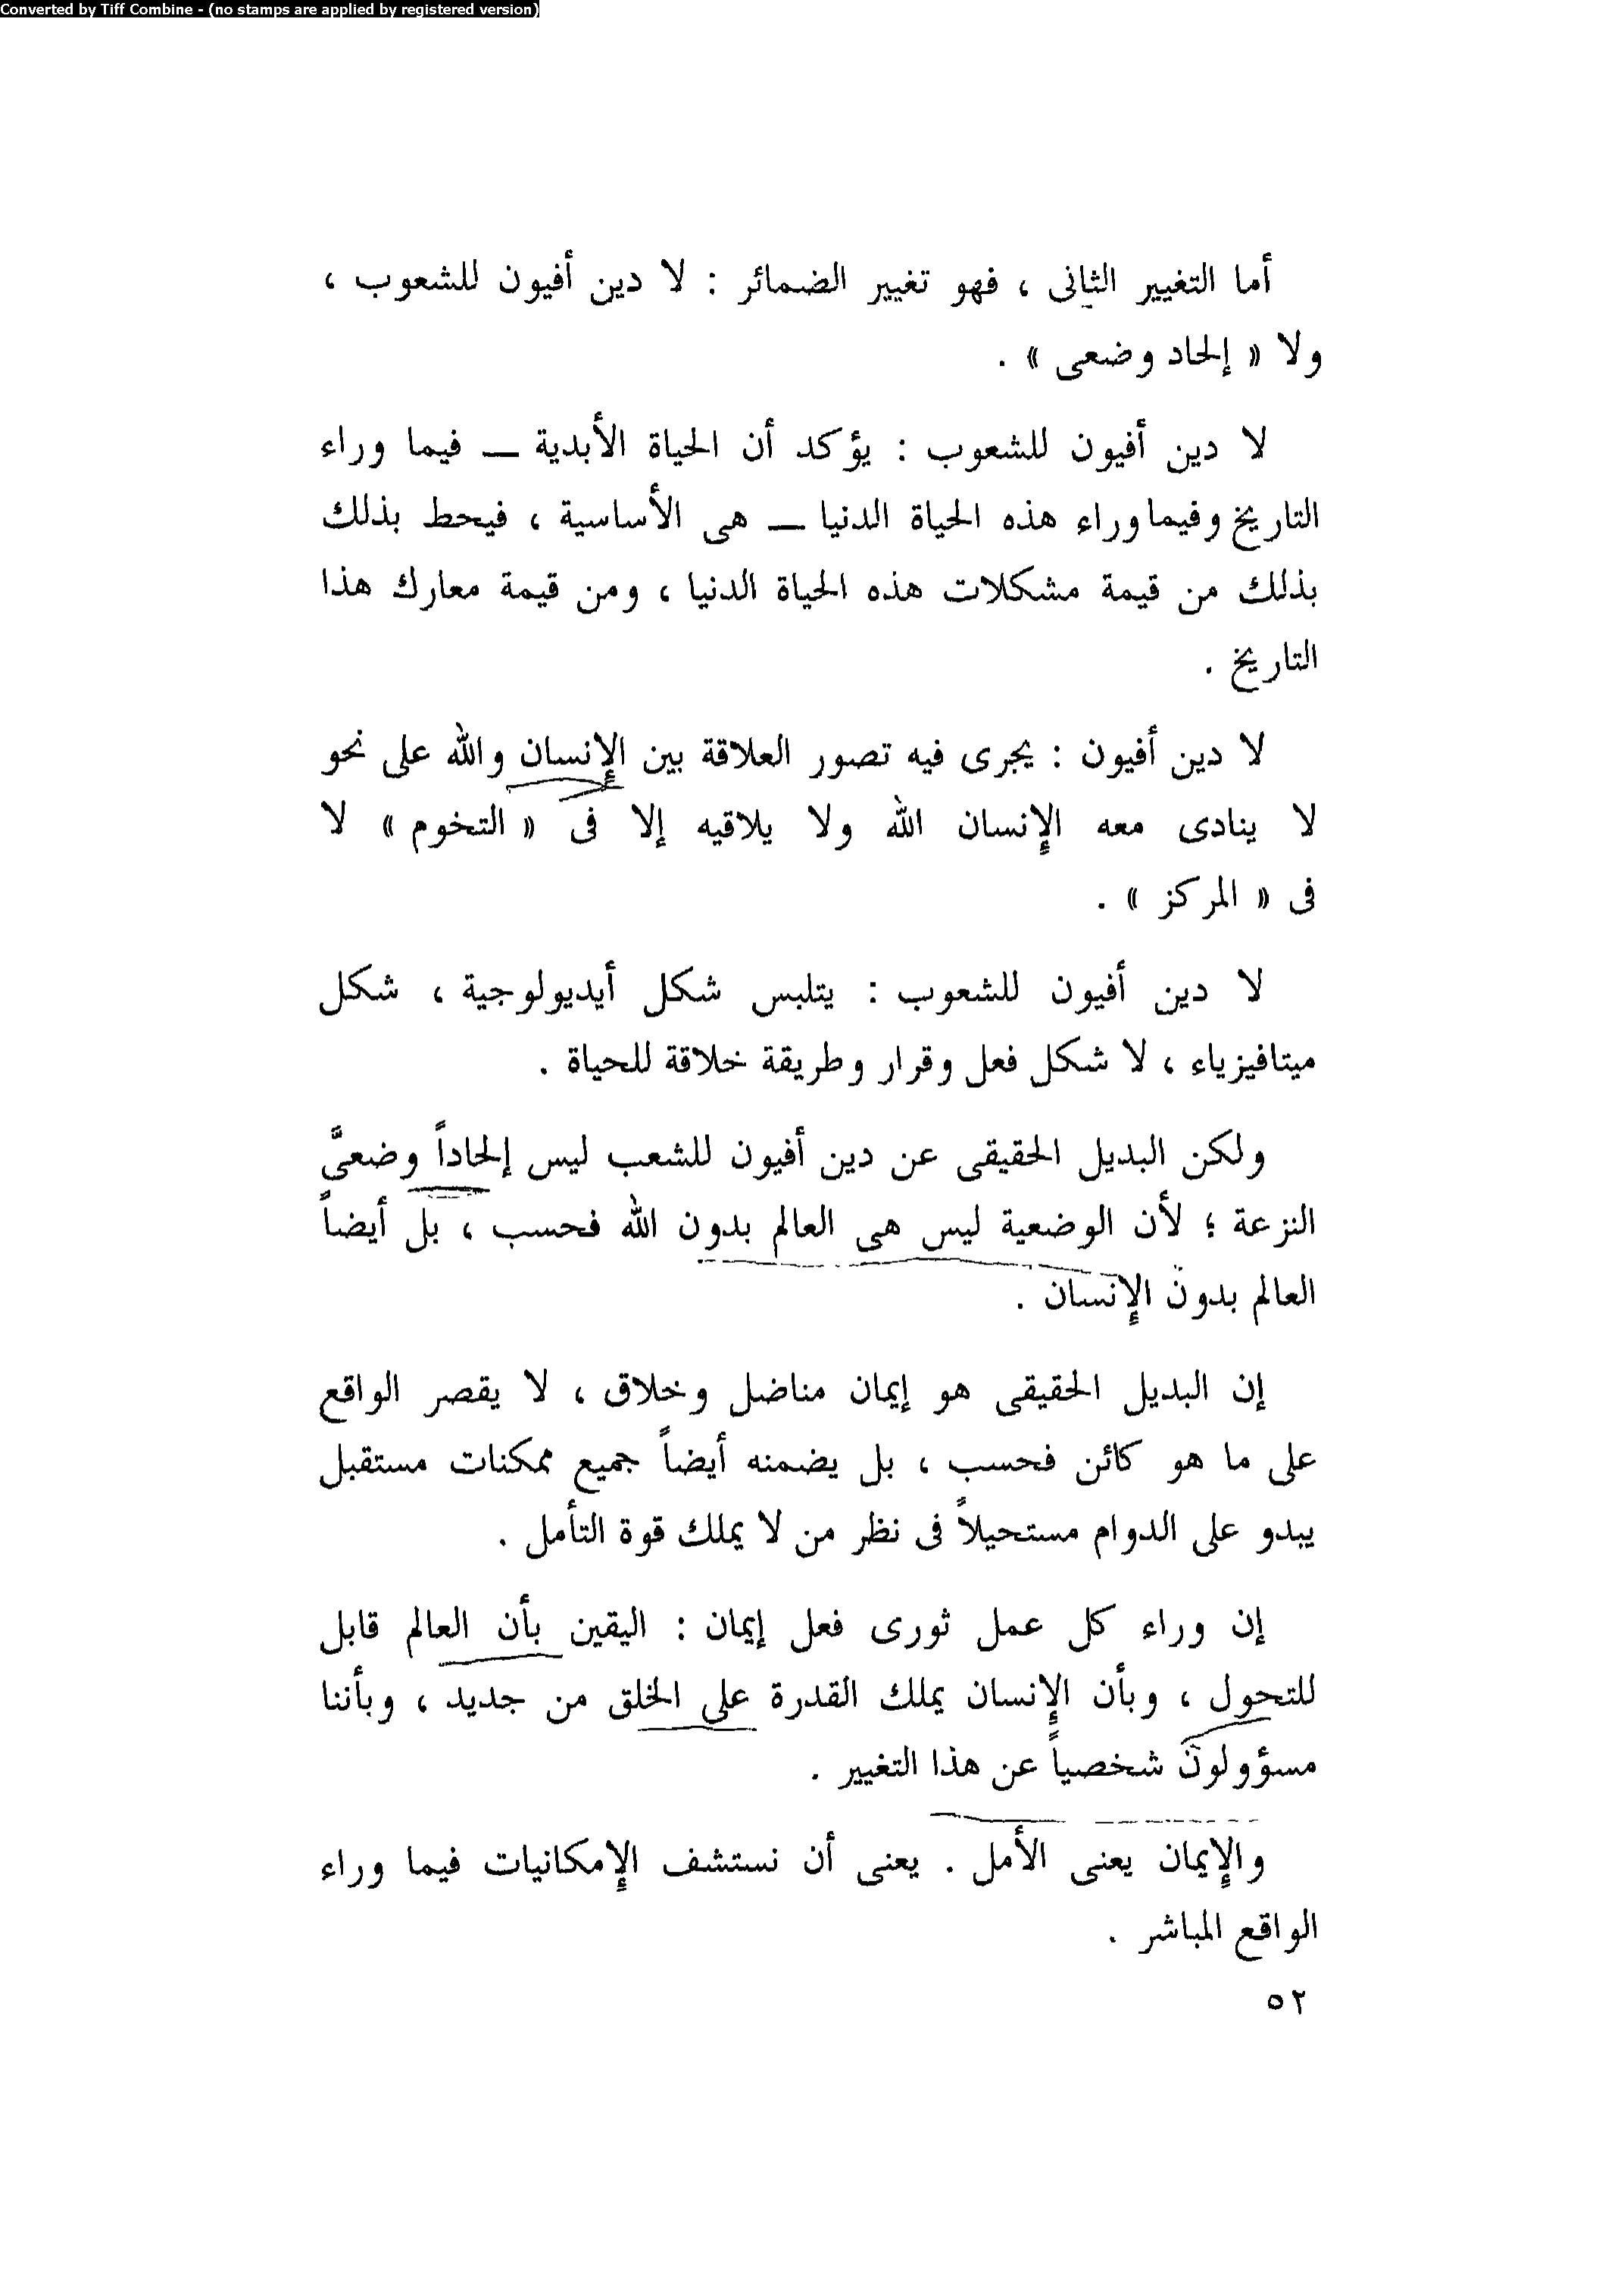 Converted by Tiff Combine - (no stamps are applied by registered version)
أما التغيير الثانى ، فهو تغيير الضمائر : لا دين أفيون للشعوب ،
ولا « إلحاد وضعى » .
لا دين أفيون للشعوب : يؤكد أن الحياة الأبدية — فيما وراء
التاريخ وفيما وراء هذه الحياة الدنيا — هى الأساسية ، فيحط بذلك
بذلك من قيمة مشكلات هذه الحياة الدنيا ، ومن قيمة معارك هذا
التاريخ .
لا دين أفيون : يجرى فيه تصور العلاقة بين الإنسان والله على نحو
لا ينادى معه الإنسان الله ولا يلاقيه إلا فى « التخوم » لا
فى « المركز » .
لا دين أفيون للشعوب : يتلبس شكل أيديولوجية ، شكل
ميتافيزياء ، لا شكل فعل وقرار وطريقة خلاقة للحياة .
ولكن البديل الحقيقى عن دين أفيون للشعب ليس إلحاداً وضعىَّ
النزعة ؛ لأن الوضعية ليس هى العالم بدون الله فحسب ، بل أيضاً
العالم بدون الإنسان .
إن البديل الحقيقى هو إيمان مناضل وخلاق ، لا يقصر الواقع
على ما هو كائن فحسب ، بل يضمنه أيضاً جميع ممكنات مستقبل
يبدو على الدوام مستحيلاً فى نظر من لا يملك قوة التأمل .
إن وراء كل عمل ثورى فعل إيمان : اليقين بأن العالم قابل
للتحول ، وبأن الإنسان يملك القدرة على الخلق من جديد ، وبأننا
مسؤولون شخصياً عن هذا التغيير .
والإيمان يعنى الأمل . يعنى أن نستشف الإمكانيات فيما وراء
الواقع المباشر .
٥٢